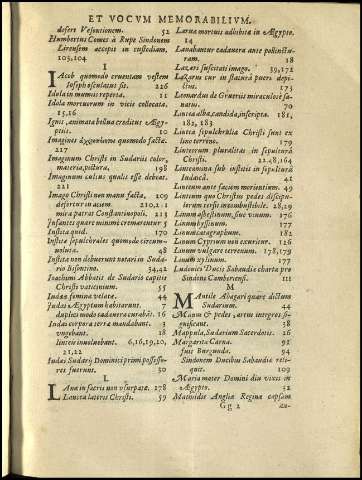 ET VOCVM MEMORABILIVM.
desert Vesontionem. 52
Humbertus Comes à Rupe Sindonem
Lirensem accepit in custodiam.
103, 104
I
IAcob quomodo cruentam vestem
Ioseph osculatus sit. 226
Idola in mumiis reperta. 11
Idola mortuorum in vicis collocata.
15, 16
Ignis, animata bellua creditus Ægy-
ptiis. 10
Imagines quomodo factæ.
217
Imaginum Christi in Sudariis color,
materia, pictura. 198
Imaginum cultus qualis esse debeat.
221
Imago Christi non manu facta. 209
defertur in aciem 210, 211
mira patrat Constantinopoli. 213
Infantes quare minimè cremarentur 5
Instita quid. 170
Institæ sepulchrales quomodo circum-
uolutæ. 48
Instita non debuerunt notari in Suda-
rio Bisontino. 34, 42
Ioachimi Abbatis de Sudario capitis
Christi vaticinium. 55
Iudææ feminæ velatæ. 44
Iudæi Ægyptum habitarunt. 7
duplici modo cadauera curabāt. 16
Iudæi corpora terræ mandabant. 3
vngebant. 18
linteis inuoluebant. 6, 16, 19, 20,
21, 22
Iudæ Sudarij Dominici primi possesso-
res fuerunt. 30
L
LAna in sacris non vsurpatæ. 178
Lancea lateris Christi. 59
Larua mortuis adhibita in Ægypto.
14
Lauabantur cadauera ante pollinctu-
ram. 18
Lazari suscitati imago. 39, 172
Lazarus cur in staturâ pueri depi-
ctus. 173
Leonardus de Grueriis miraculosè sa-
natus. 70
Lintea alba, candida, inscripta. 181,
182, 183
Lintea sepulchralia Christi sunt ex
lino terreno. 179
Linteorum pluralitas in sepulturâ
Christi. 22, 48, 164
Linteamina sub institis in sepulturâ
Iudaicâ. 41
Linteum ante faciem morientium. 49
Linteum quo Christus pedes discipu-
lorum tersit inuisibile. 28, 29
Linum asbestinum, siue viuum. 176
Linum byssinum. 177
Linum catagraphum. 182
Linum Cyprium non exuritur. 126
Linum vulgare terrenum. 178, 179
Linum xylinum. 177
Ludouici Ducis Sabaudiæ charta pro
Sindone Camberiensi. 111
M
MAntile Abagari quare dictum
Sudarium. 44
Manus & pedes, artus integros si-
gnificant. 38
Mappula, Sudarium Sacerdotis. 26
Margarita Carna. 91
siue Burgunda. 94
Sindonem Ducibus Sabaudiæ reli-
quit. 109
Maria mater Domini diu vixit in
Ægypto. 32
Mathildis Angliæ Regina capsam
Gg 2 au-